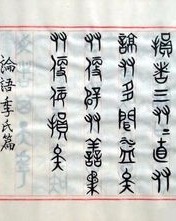 損者三友〻直友
諒友多聞益矣
友便辟友善柔
友便佞損矣
論語季氏篇